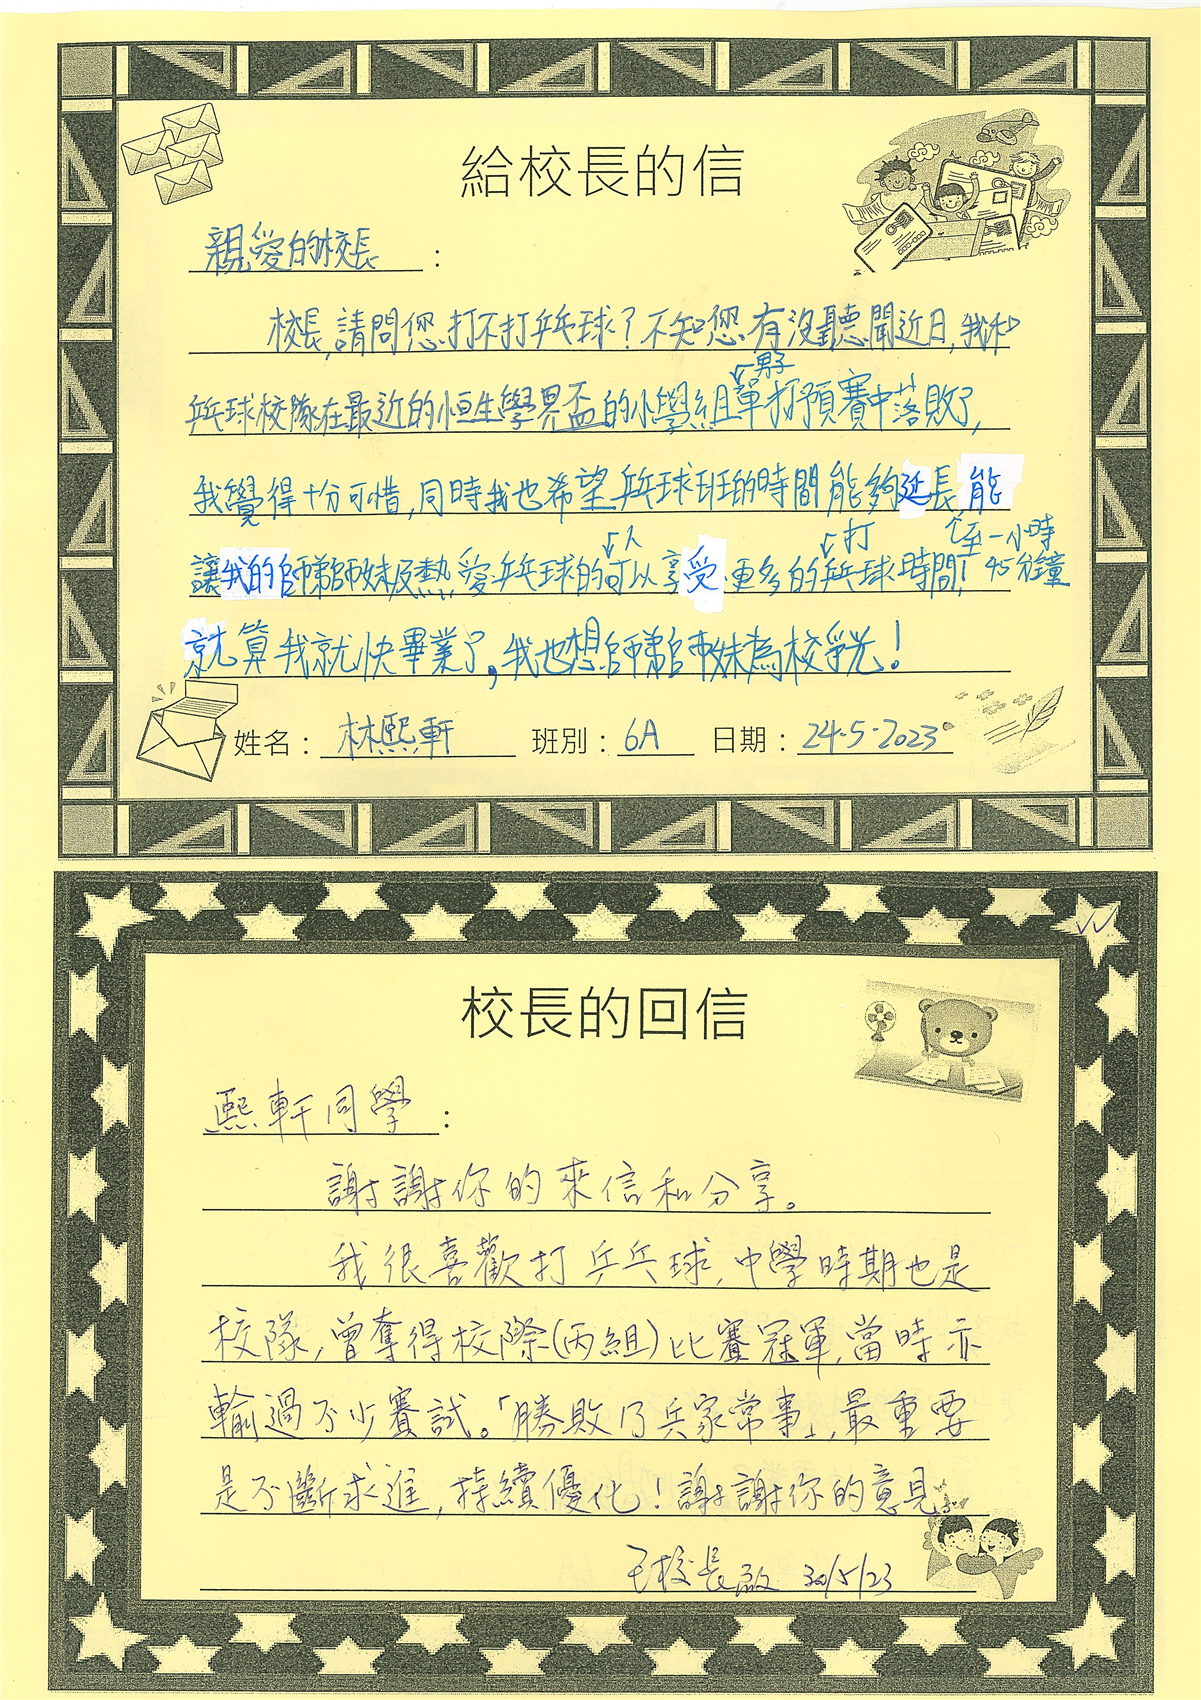 給校長的信
親愛的校長：
校長,請問您打不打乒乓球？不知您有沒聽聞近日,我校
男子
乒乓球校隊在最近的恒生學界盃的小學組單打預賽中落敗了,
我覺得十分可惜,同時我也希望乒乓球班的時間能夠延長,能
人 打 至一小時
讓我的師弟師妹及熱愛乒乓球的可以享受更多的乒乓球時間! 45分鐘
就算我就快畢業了,我也想師弟師妹為校爭光!
姓名：林熙軒 班別：6A 日期：24-5-2023
校長的回信
熙軒同學：
謝謝你的來信和分享。
我很喜歡打乒乓球,中學時期也是
校隊,曾奪得校際(丙組)比賽冠軍,當時亦
輸過不少賽試。「勝敗乃兵家常事」,最重要
是不斷求進,持續優化!謝謝你的意見
王校長啟 30/5/23